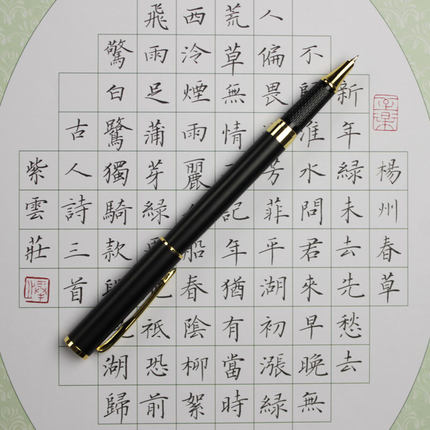 楊州春草
新年綠未去先愁去
不淮水問君來早晚無
人偏畏芳菲平湖初漲綠
荒草無情記年猶有當時
西泠煙雨麗船春陰柳絮
飛雨足蒲芽綠衹恐前
驚白鷺獨騎款湖歸
古人詩三首
紫雲莊